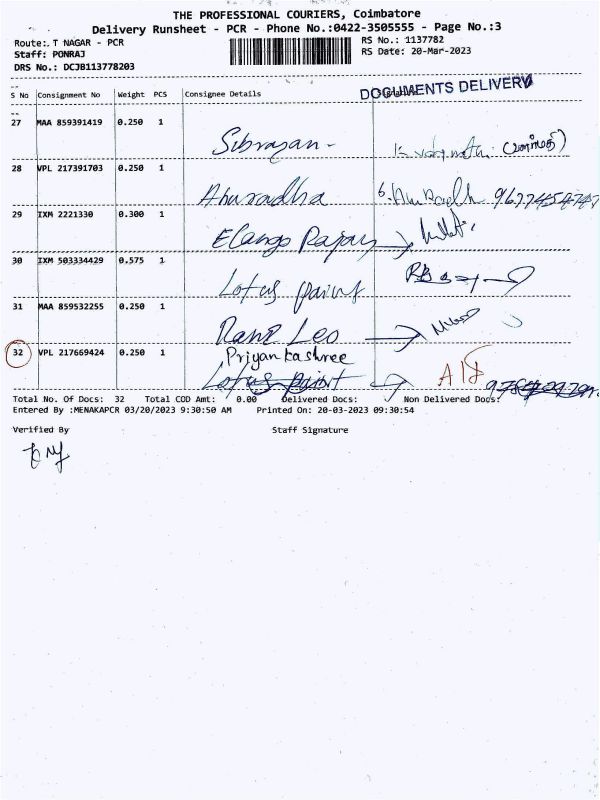 THE PROFESSIONAL COURIERS, Coimbatore
Delivery Runsheet - PCR - Phone No.:0422-3505555 - Page No.:3
Route:. T NAGAR - PCR
RS No.: 1137782
Staff: PONRAJ
RS Date: 20-Mar-2023
DRS No.: DCJB113778203
DOCUMENTS DELIVERY
S No Consignment No Weight PCS Consignee Details
27 MAA 859391419 0.250 1
Sibrajan-
28 VPL 217391703 0.250 1
Anuradha
29 IXM 2221330 0.300 1
Elango Rajan
30 IXM 503334429 0.575 1
Lotus paint
31 MAA 859532255 0.250 1
Rani Leo
32 VPL 217669424 0.250 1
Priyankashree
Lotus paint
Total No. Of Docs: 32 Total COD Amt: 0.00 Delivered Docs: Non Delivered Docs:
Entered By :MENAKAPCR 03/20/2023 9:30:50 AM Printed On: 20-03-2023 09:30:54
Verified By Staff Signature